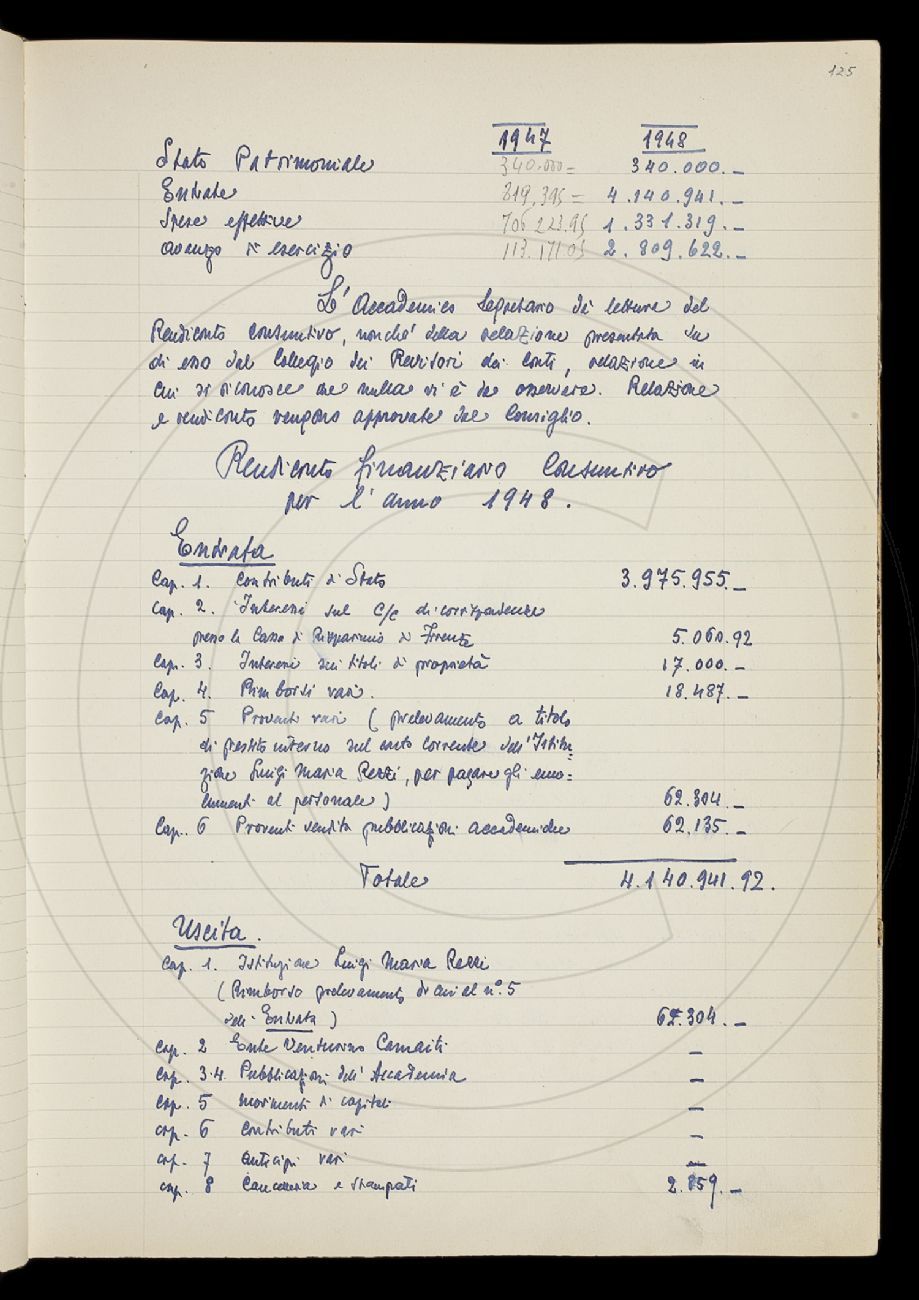 125
1947 1948
Stato Patrimoniale 340.000= 340.000.–
Entrate 819.395= 4.140.941.–
Spese effettive 706 223.95 1.331.319.–
avanzo di esercizio 113.171 05 2.809.622.–
L'Accademico Segretario dà lettura del
Rendiconto consuntivo, nonché della relazione presentata su
di esso dal Collegio dei Revisori dei Conti, relazione in
cui si riconosce che nulla vi è da osservare. Relazione
e rendiconto vengono approvate dal Consiglio.
Rendiconto finanziario Consuntivo
per l'anno 1948.
Entrata
Cap. 1. Contributi di Stato 3.975.955.–
Cap. 2. Interessi sul C/c di corrispondenza
presso la Cassa di Risparmio di Firenze 5.060.92
Cap. 3. Interessi sui titoli di proprietà 17.000.–
Cap. 4. Rimborsi vari. 18.487.–
Cap. 5 Proventi vari (prelevamento a titolo
di prestito interno sul conto corrente dell'Istitu=
zione Luigi Maria Rezzi, per pagare gli emo=
lumenti al personale) 62.304.–
Cap. 6 Proventi vendita pubblicazioni accademiche 62.135.–
Totale 4.140.941.92.
Uscita.
Cap. 1. Istituzione Luigi Maria Rezzi
(Rimborso prelevamento di cui al n°. 5
dell'Entrata) 62.304.–
Cap. 2 Ente Venturino Camaiti –
Cap. 3.4. Pubblicazioni dell'Accademia –
Cap. 5 Movimenti di capitali –
cap. 6 Contributi vari –
cap. 7 Anticipi vari –
cap. 8 Cancelleria e stampati 2.859.–